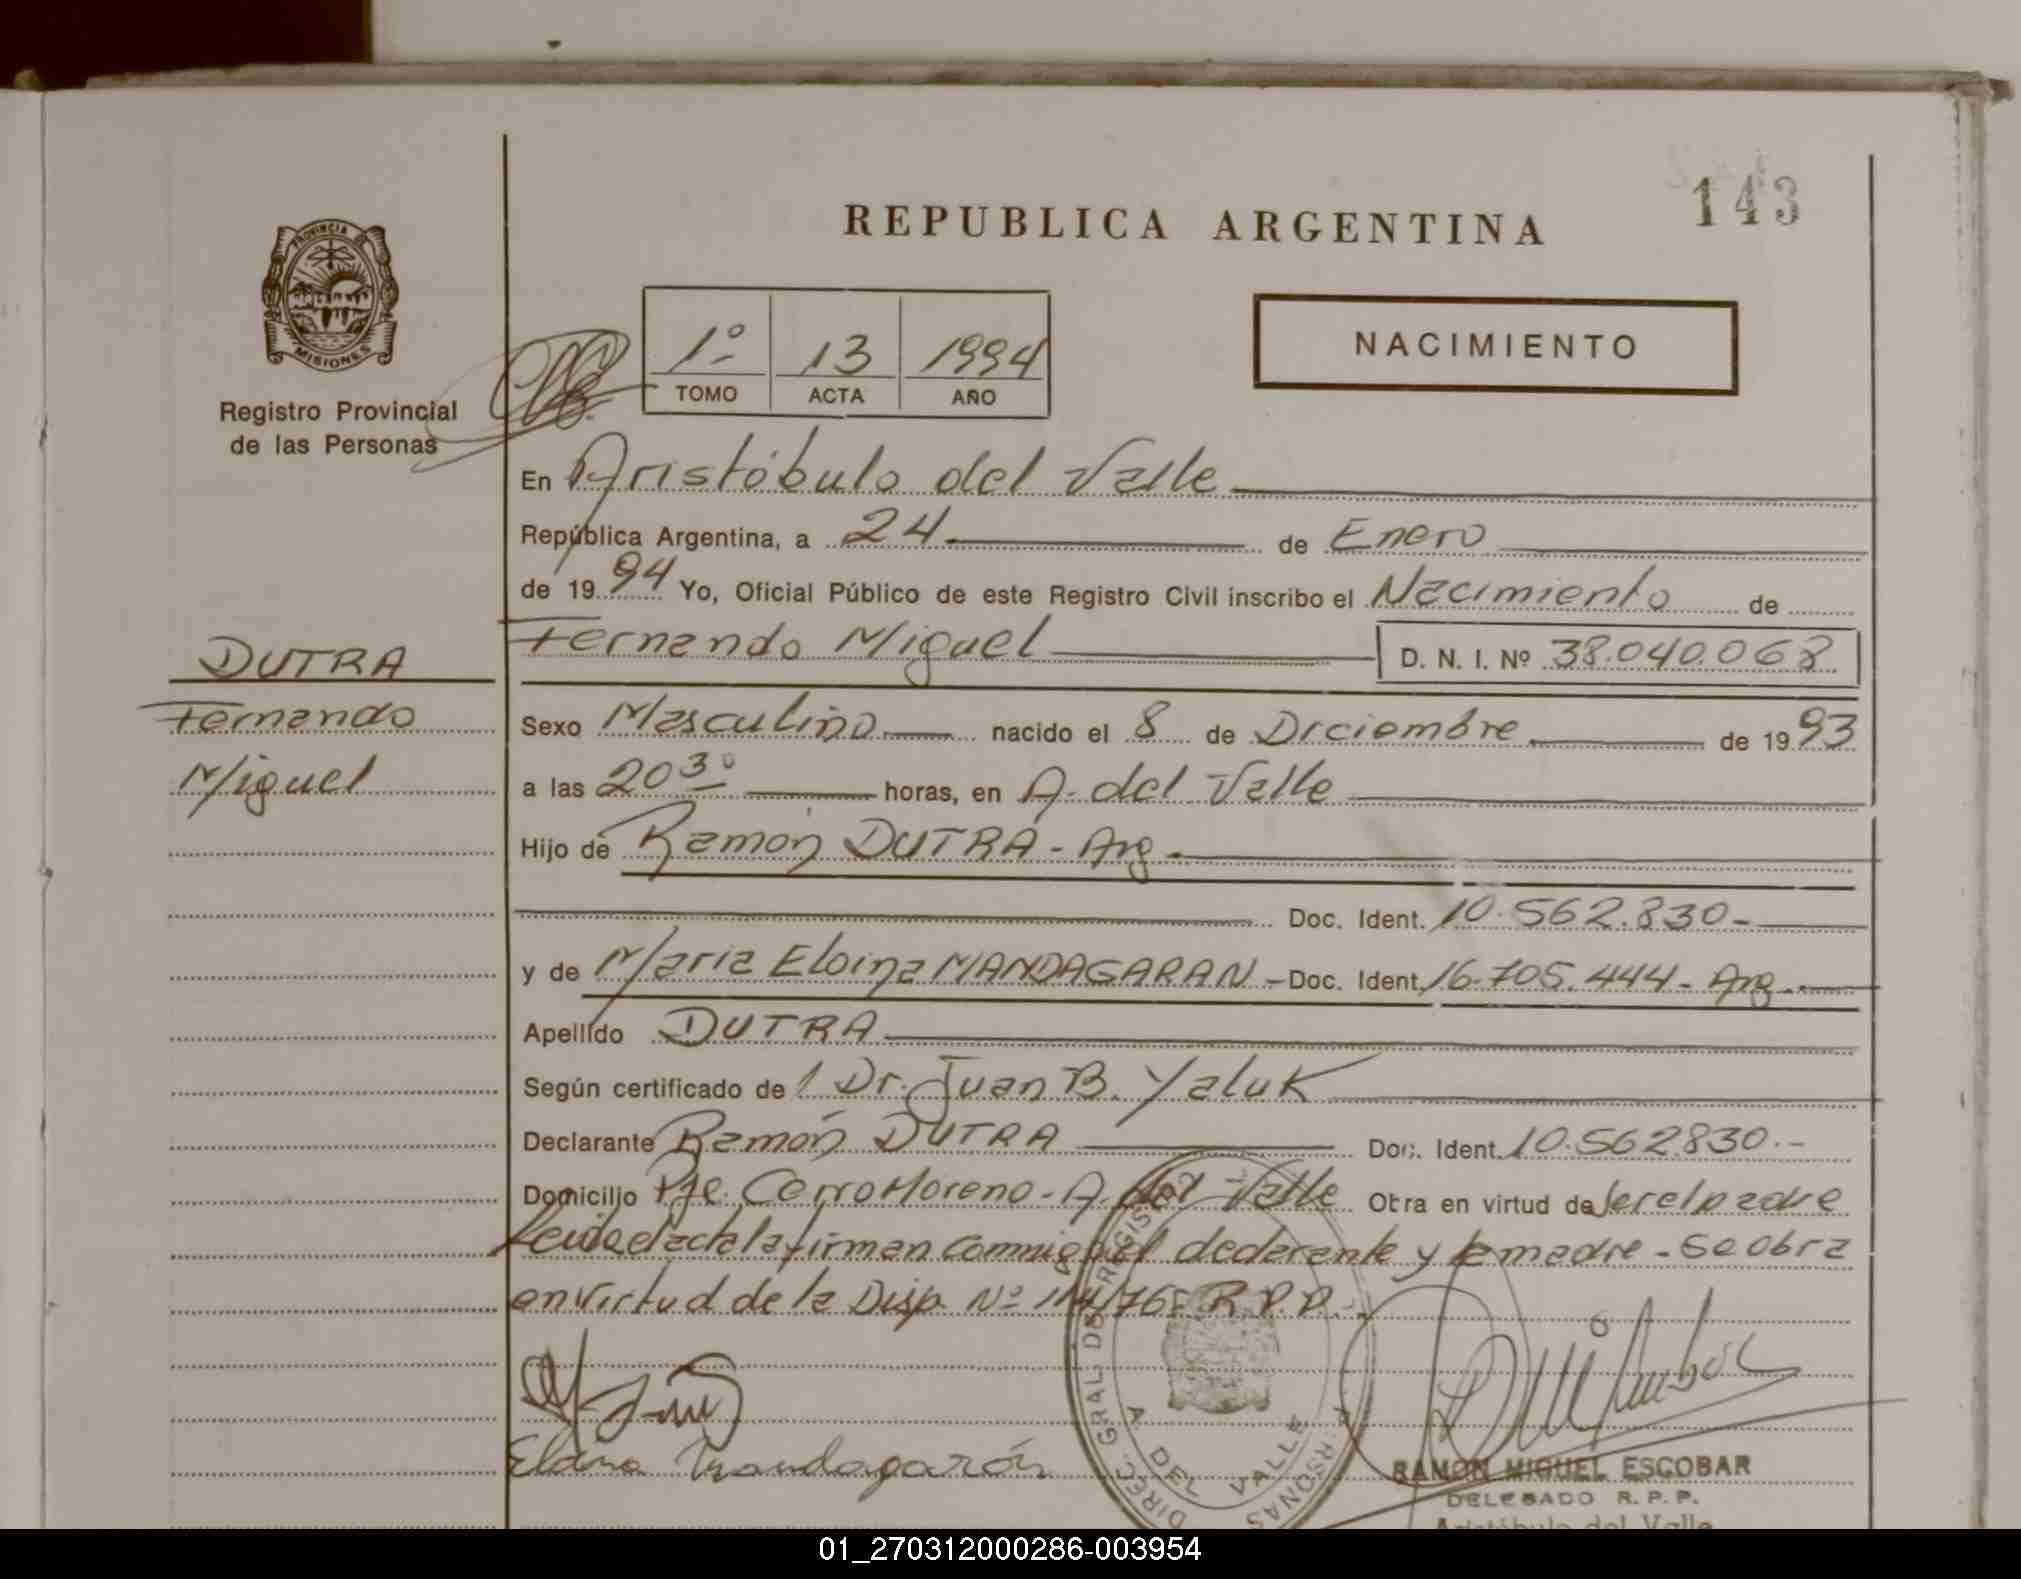 143
REPUBLICA ARGENTINA
PROVINCIA DE
MISIONES
Registro Provincial
de las Personas
1º 13 1994
TOMO ACTA AÑO
NACIMIENTO
En Aristóbulo del Valle
República Argentina, a 24 de Enero
de 1994 Yo, Oficial Público de este Registro Civil inscribo el Nacimiento de
Fernando Miguel D. N. I. Nº 38.040.068
DUTRA
Fernando
Miguel
Sexo Masculino nacido el 8 de Diciembre de 1993
a las 20 30 horas, en A. del Valle
Hijo de Ramón DUTRA - Arg -
Doc. Ident. 10.562.830-
y de Maria Eloina MANDAGARAN - Doc. Ident. 16.705.444 - Arg.
Apellido DUTRA
Según certificado de Dr. Juan B. Yaluk
Declarante Ramón DUTRA Doc. Ident. 10.562830.-
Domicilio Pje. Cerro Moreno - A. del Valle Otra en virtud de ser el padre
Leida el acta la firman conmigo el declarante y la madre - Se obra
en virtud de la Disp. Nº 114/76 - R.P.P.
Eloina Mandagarán
DIREC. GRAL. DE REGIST PERSONAS
A. DEL VALLE
RAMON MIGUEL ESCOBAR
DELEGADO R. P. P.
Aristóbulo del Valle
01_270312000286-003954